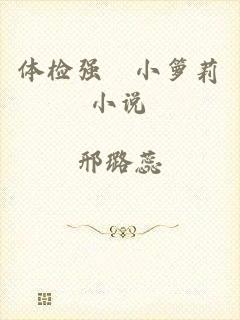 体检强 小箩莉
小说
邢璐蕊